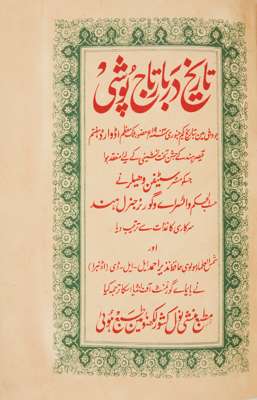 تاریخ دربار تاج پوشی
جو دہلی مین بتاریخ یکم جنوری سنہ ۱۹۰۳ء حضور ملک معظم اڈورڈ ہفتم
قیصر ہند کے جشن تخت نشینی کے لیے منعقد ہوا
جسکو مسٹر سٹیفن وھیلر نے
حسب الحکم وائسراے و گورنر جنرل ہند
سرکاری کاغذات سے ترتیب دیا
اور
شمس العلما مولوی حافظ نذیر احمد ایل۔ ایل۔ ڈی (اڈنبرا)
نے بایماے گورنمنٹ آف انڈیا اسکا ترجمہ کیا
مطبع منشی نول کشور لکھنؤ مین طبع ہوئی